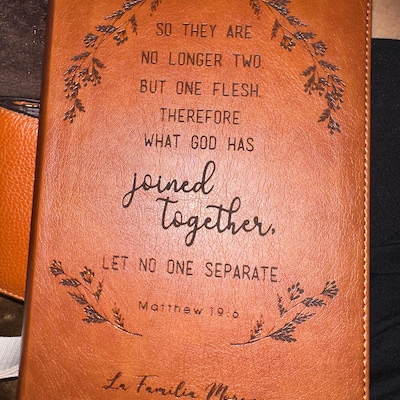 SO THEY ARE
NO LONGER TWO
BUT ONE FLESH.
THEREFORE
WHAT GOD HAS
joined
together,
LET NO ONE SEPARATE.
Matthew 19:6
La Familia